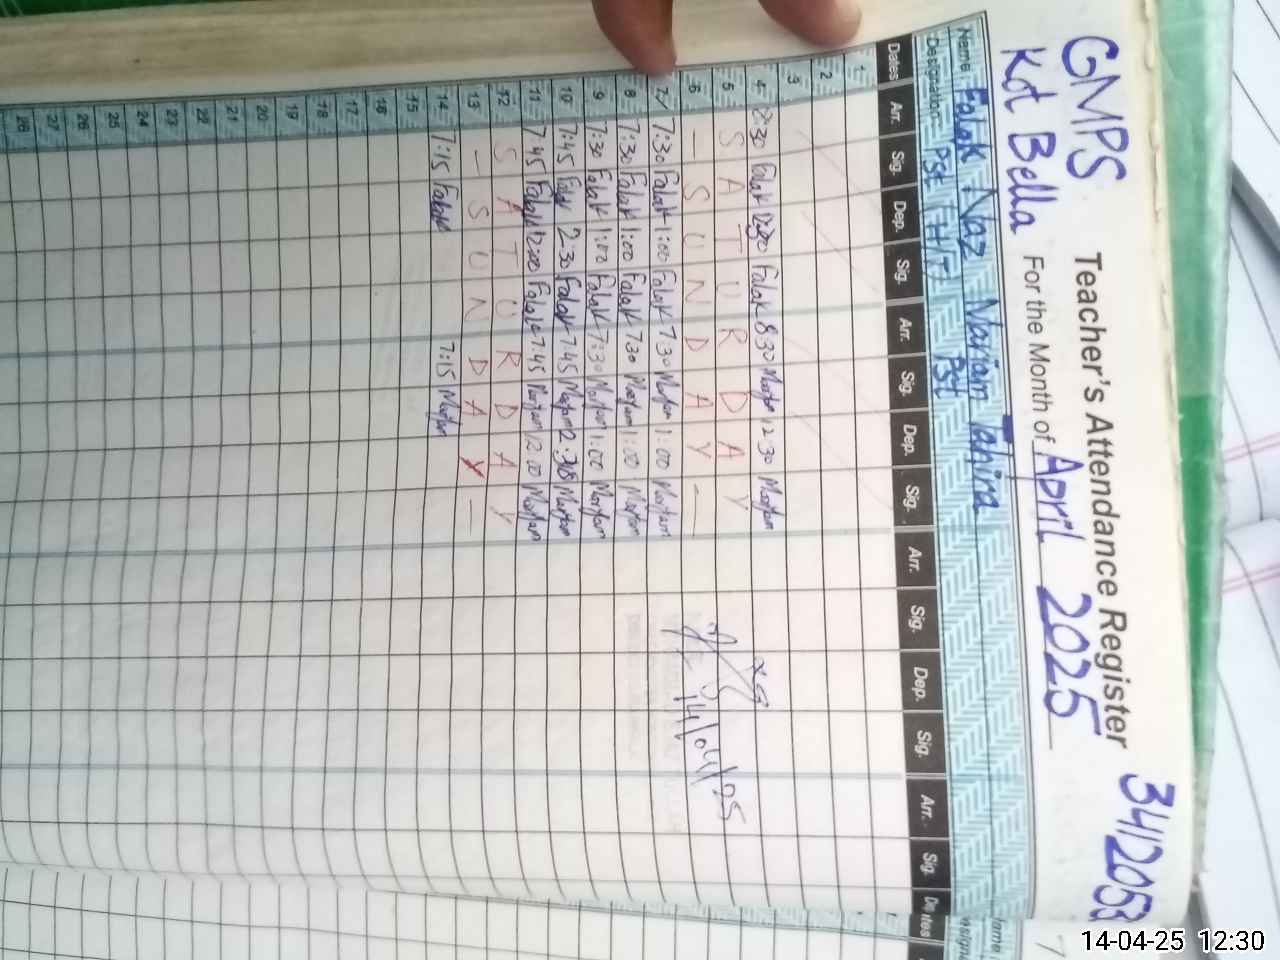 GMPS
Kot Bella
34120053
Teacher's Attendance Register
For the Month of April 2025
Name Falak Naz Mariam Tahira
Designation PST (H/T) PST
Dates Arr. Sig. Dep. Sig. Arr. Sig. Dep. Sig. Arr. Sig. Dep. Sig. Arr. Sig.
1
2
3
4 8:30 Falak 12:30 Falak 8:30 Mariam 12:30 Mariam
5 S A T U R D A Y
6 — S U N D A Y —
7 7:30 Falak 1:00 Falak 7:30 Mariam 1:00 Mariam
8 7:30 Falak 1:00 Falak 7:30 Mariam 1:00 Mariam
9 7:30 Falak 1:00 Falak 7:30 Mariam 1:00 Mariam
10 7:45 Falak 2:30 Falak 7:45 Mariam 2:30 Mariam
11 7:45 Falak 12:00 Falak 7:45 Mariam 12:00 Mariam
12 S A T U R D A Y
13 — S U N D A Y —
14 7:15 Falak 7:15 Mariam
15
16
17
18
19
20
21
22
23
24
25
26
27
28
14/04/25
14-04-25 12:30